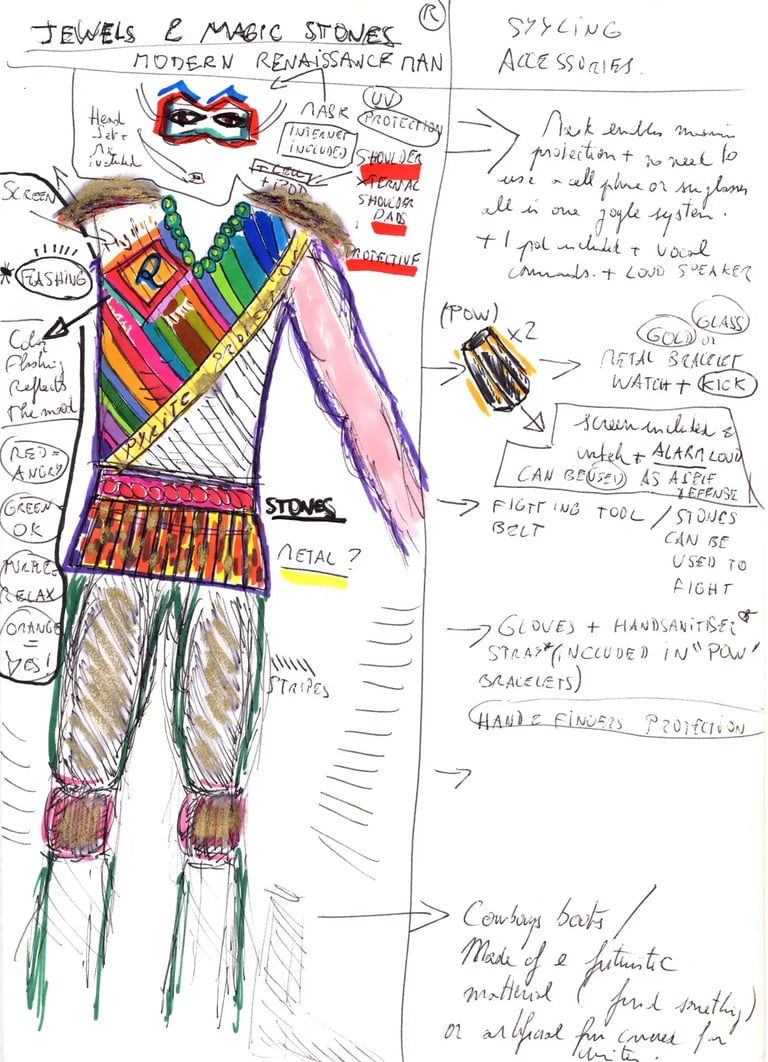 JEWELS & MAGIC STONES
MODERN RENAISSANCE MAN
R
STYLING
ACCESSORIES.
Head
Set +
included
MASK
INTERNET
INCLUDED
+ IPOD
UV
PROTECTION
SHOULDER
XTERNAL
SHOULDER
PADS
PROTECTIVE
SCREEN
* FLASHING
Color
Flashing
Reflects
The mood
RED =
ANGRY
GREEN
OK
PURPLE =
RELAX
ORANGE
=
YES!
R
STONES
METAL ?
STRIPES
Mask enables
protection + no need to
use a cell phone or sunglasses
all in one gogle system.
+ I pod included + vocal
commands. + LOUD SPEAKER
(POW)
x2
GOLD or GLASS
METAL BRACELET
WATCH + KICK
Screen included &
watch + ALARM LOUD
CAN BE USED AS A SELF
DEFENSE
FIGTTING TOOL / STONES
BELT
CAN BE
USED TO
FIGHT
GLOVES + HANDSANITIZER
STRAY* (INCLUDED IN "POW"
BRACELETS)
HAND & FINGERS PROTECTION
Cowboys boots /
Made of a futuristic
matterial ( find something)
or artificial fur covered for
winter